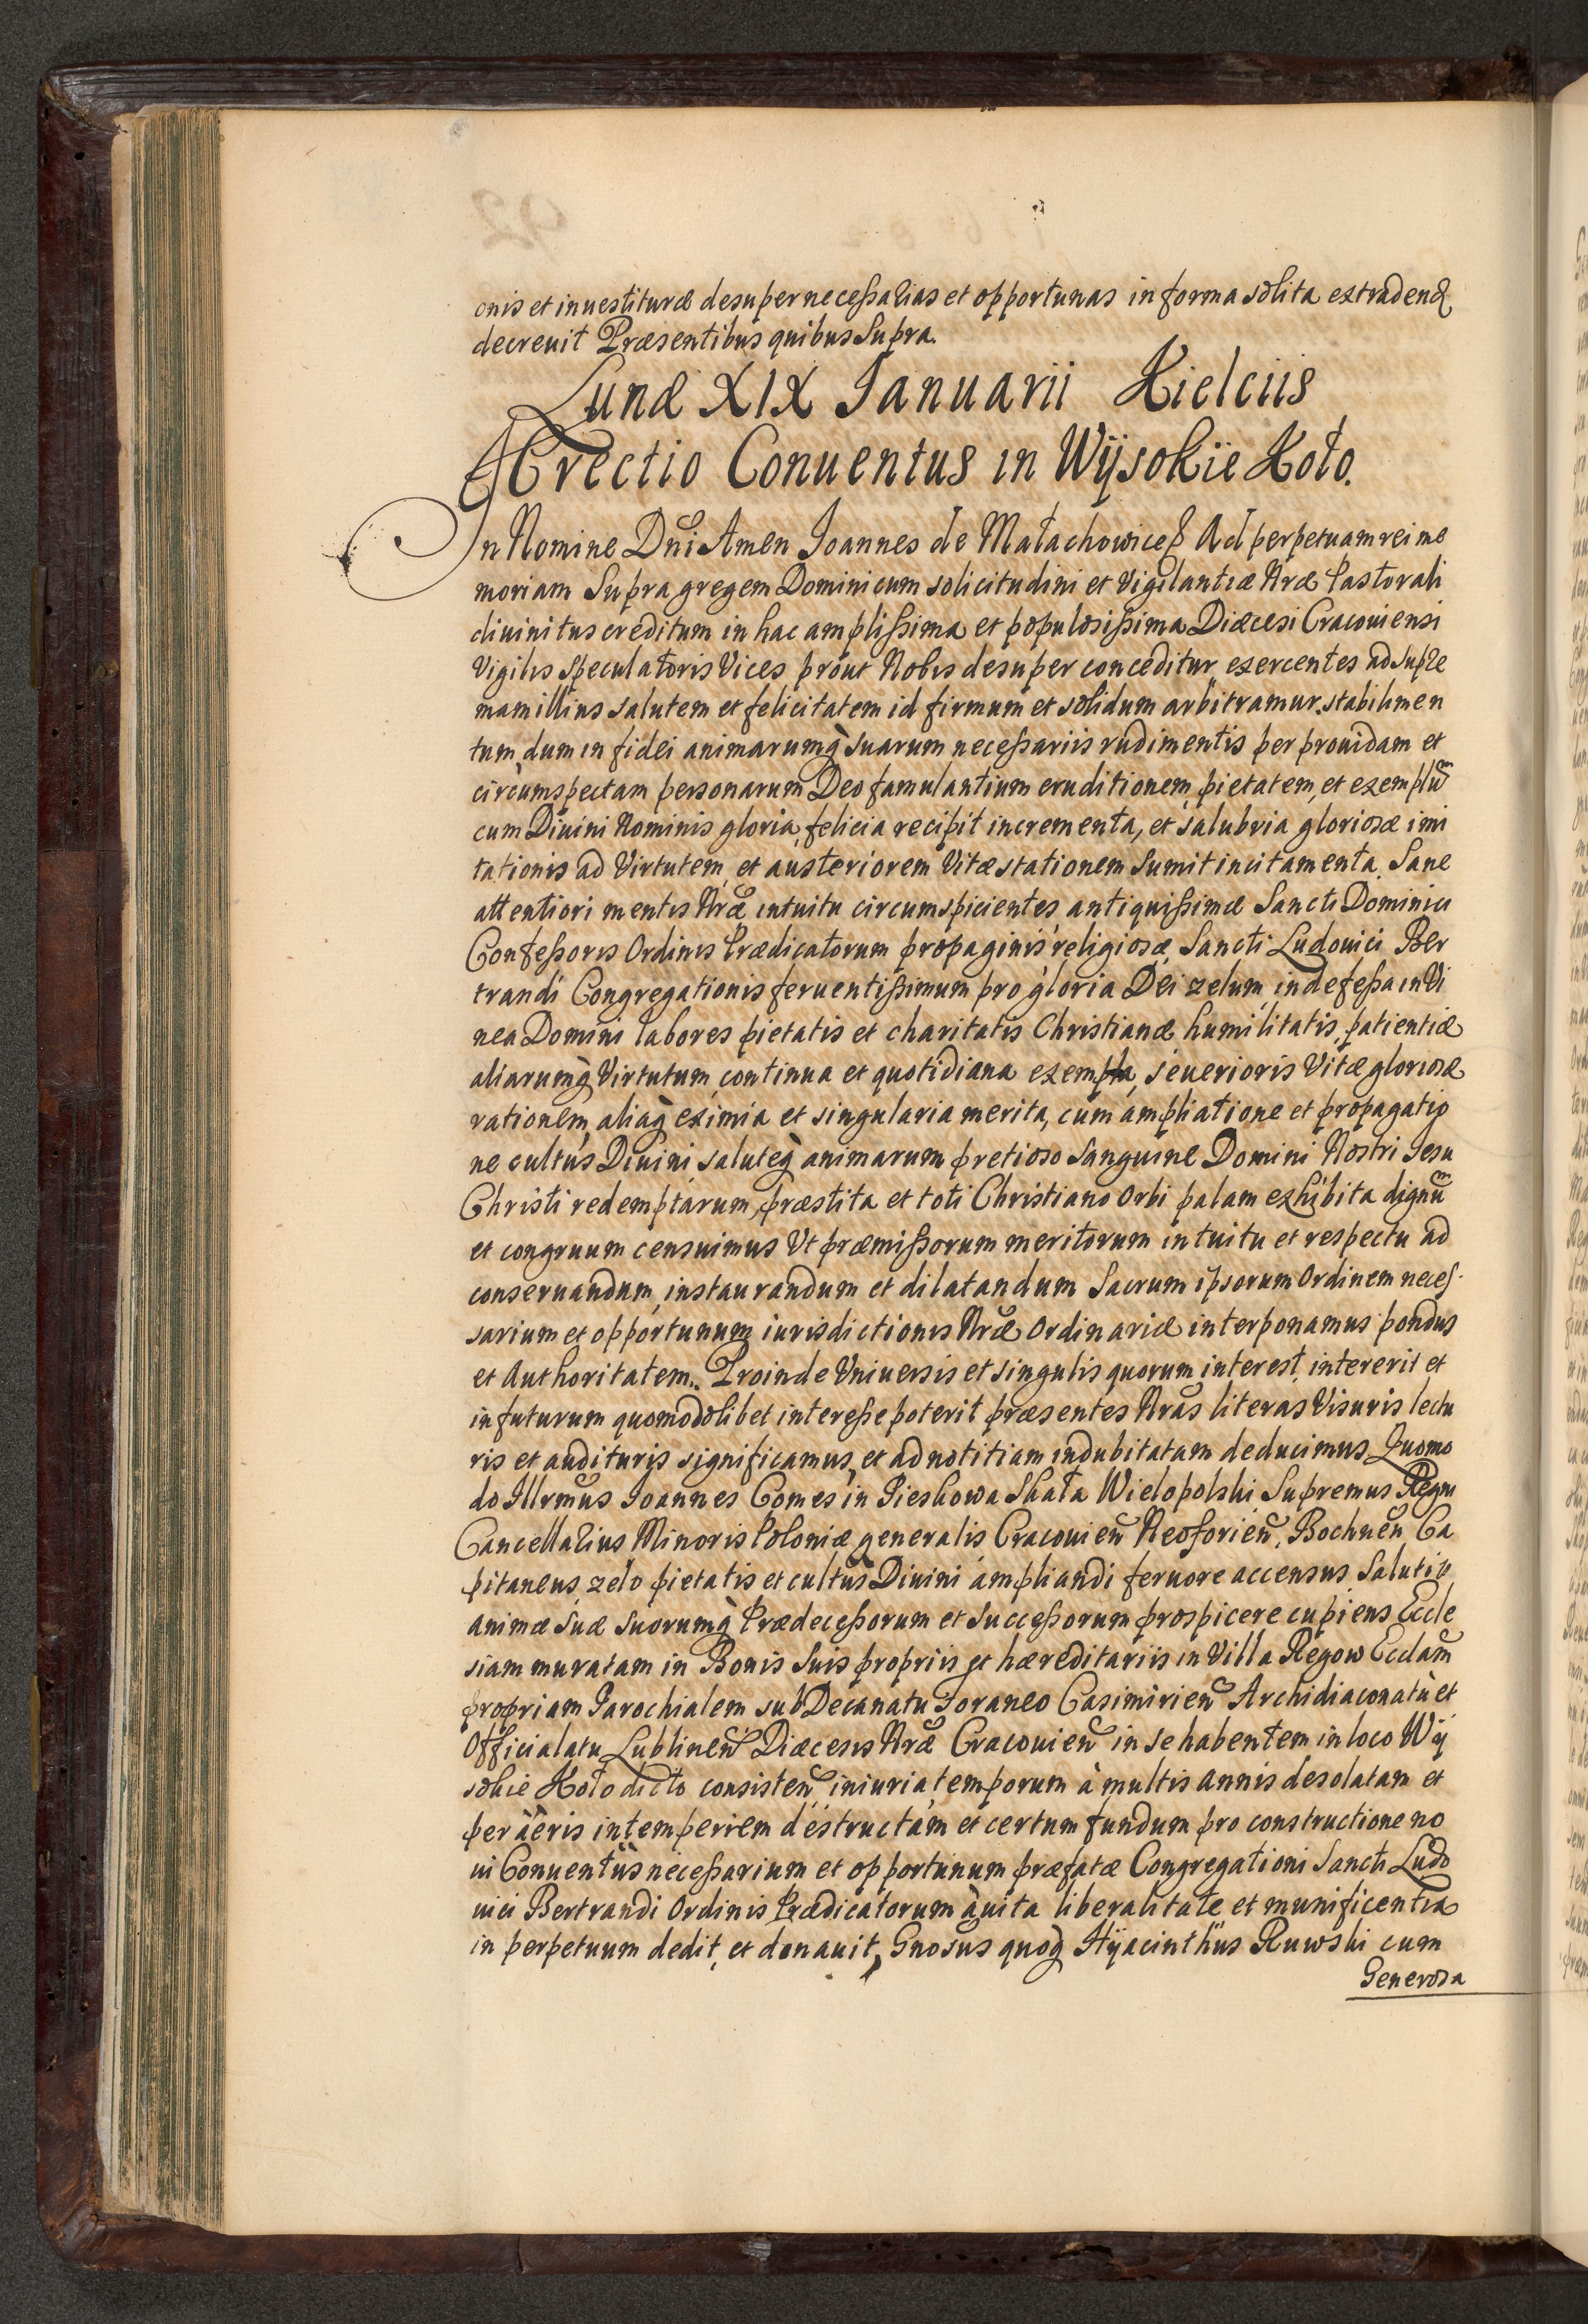 onis et inuestituræ desuper necessarias et opportunas in forma solita extradend
decreuit Præsentibus quibus Supra.
Lunæ XIX Ianuarii Kielciis
Erectio Conuentus in Wÿsokie Koło.
In Nomine Dni Amen Ioannes de Małachowice & Ad perpetuam rei me
moriam Supra gregem Dominicum solicitudini et Vigilantiæ Nræ Pastorali
diuinitus creditum in hac amplissima et populosissima Diæcesi Cracouiensi
Vigilis Speculatoris Vices prout Nobis desuper conceditur exercentes ad supre
mam illius salutem et felicitatem id firmum et solidum arbitramur stabilimen
tum, dum in fidei animarumq̀ suarum necessariis rudimentis per prouidam et
circumspectam personarum Deo famulantium eruditionem, pietatem, et exemplũ
cum Diuini Nominis gloria, felicia recipit incrementa, et salubria gloriosæ imi
tationis ad Virtutem, et austeriorem Vitæ stationem Sumit incitamenta. Sane
attentiori mentis Nræ intuitu circumspicientes antiquissimæ Sancti Dominici
Confessoris Ordinis Prædicatorum propaginis religiosæ, Sancti Ludouici Ber
trandi Congregationis feruentissimum pro gloria Dei zelum, indefessa in Vi
nea Domini labores pietatis et charitatis Christianæ humilitatis, patientiæ
aliarumq̀ Virtutum, continua et quotidiana exempla, seuerioris Vitæ gloriosæ
rationem, aliaq̀ eximia et singularia merita, cum ampliatione et propagatio
ne cultus Diuini, saluteq̀ animarum pretioso Sanguine Domini Nostri Iesu
Christi redemptarum, præstita et toti Christiano Orbi palam exhibita dignũ
et congruum censuimus Vt præmissorum meritorum intuitu et respectu ad
conseruandum, instaurandum et dilatandum Sacrum ipsorum Ordinem neces-
sarium et opportunum iurisdictionis Nræ Ordinariæ interponamus pondus
et Authoritatem. Proinde Vniuersis et singulis quorum interest, intererit et
in futurum quomodolibet interesse poterit præsentes Nras literas Visuris lectu
ris et audituris significamus, et ad notitiam indubitatam deducimus Quomo
do Illrmus Ioannes Comes in Pieskowa Skała Wielopolski Supremus Regni
Cancellarius Minoris Poloniæ generalis, Cracouien̄ Neoforien̄, Bochnen̄ Ca
pitaneus, zelo pietatis et cultus Diuini ampliandi feruore accensus Salutiq̀
animæ suæ suorumq̀ Prædecessorum et Successorum prospicere cupiens Eccle
siam muratam in Bonis Suis propriis et hæreditariis in Villa Regow Ecclam̄
propriam Parochialem sub Decanatu foraneo Casimirien̄ Archidiaconatu et
Officialatu Lublinen̄ Diæcesis Nræ Cracouien̄ in se habentem in loco Wÿ
sokie Koło dicto consisten̄, iniuria temporum à multis annis desolatam et
per aëris intemperiem destructam et certum fundum pro constructione no
ui Conuentûs necessarium et opportunum præfatæ Congregationi Sancti Ludo
uici Bertrandi Ordinis Prædicatorum àuita liberalitate et munificentia
in perpetuum dedit, et donauit, Gnosus quoq̀ Hÿacinthus Ruwski cum
Generosa